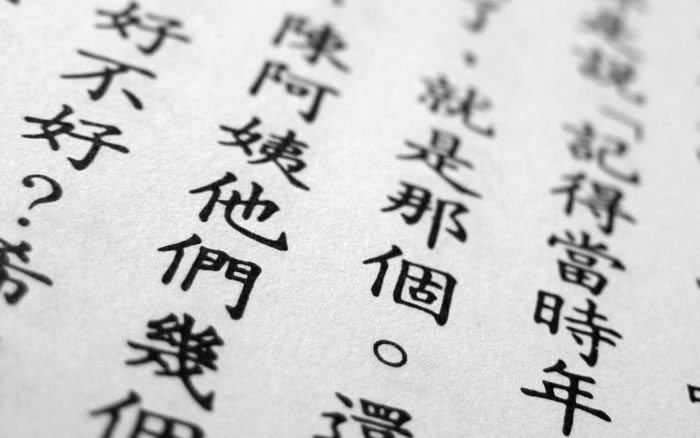 是說「記得當時年
了，就是那個。還
陳阿姨他們幾個
好不好？希